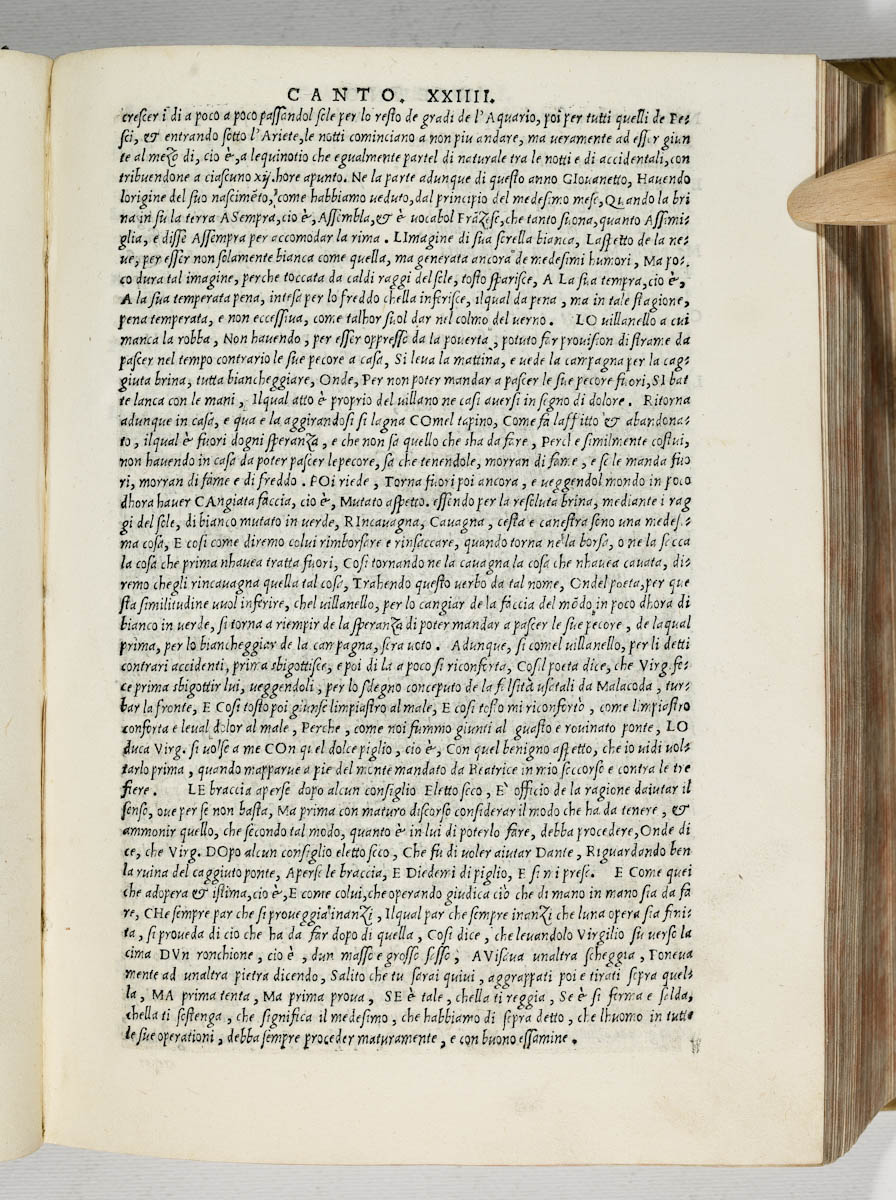 CANTO. XXIIII.
crescer i di a poco a poco passandol sole per lo resto de gradi de l'Aquario, poi per tutti quelli de Pe-
sci, & entrando sotto l'Ariete, le notti cominciano a non piu andare, ma veramente ad esser giun
te al mezo di, cio è, a lequinotio che egualmente partel di naturale tra le notti e di accidentali, con
tribuendone a ciascuno xij. hore apunto. Ne la parte adunque di questo anno GIovanetto, Havendo
lorigine del suo nascimẽto, come habbiamo veduto, dal principio del medesimo mese, Quando la bri
na in su la terra ASempra, cio è, Assembla, & è vocabol Frãzese, che tanto suona, quanto Assimi-
glia, e disse Assempra per accomodar la rima. LImagine di sua sorella bianca, Laspetto de la ne-
ue, per esser non solamente bianca come quella, ma generata ancora de medesimi humori, Ma po-
co dura tal imagine, perche toccata da caldi raggi del sole, tosto sparisce, A La sua tempra, cio è,
A la sua temperata pena, intesa per lo freddo chella inferisce, ilqual da pena, ma in tale stagione,
pena temperata, e non eccessiua, come talhor suol dar nel colmo del uerno. LO uillanello a cui
manca la robba, Non hauendo, per esser oppresso da la pouerta, potuto far prouision di strame da
pascer nel tempo contrario le sue pecore a casa, Si leua la mattina, e uede la campagna per la cag-
giuta brina, tutta biancheggiare, Onde, Per non poter mandar a pascer le sue pecore fuori, SI bat
te lanca con le mani, Ilqual atto è proprio del uillano ne casi auersi in segno di dolore. Ritorna
adunque in casa, e qua e la aggirandosi si lagna COmel tapino, Come fa laffitto & abandona-
to, ilqual è fuori dogni speranza, e che non sa quello che sha da fare, Perche similmente costui,
non hauendo in casa da poter pascer lepecore, sa che tenendole, morran di fame, e se le manda fuo
ri, morran di fame e di freddo. POi riede, Torna fuori poi ancora, e ueggendol mondo in poco
dhora hauer CAngiata faccia, cio è, Mutato aspetto. essendo per la resoluta brina, mediante i rag
gi del sole, di bianco mutato in verde, RIncauagna, Cauagna, cesta e canestra sono una medes-
ma cosa, E cosi come diremo colui rimborsare e rinsaccare, quando torna ne la borsa, o ne la sacca
la cosa che prima nhauea tratta fuori, Cosi tornando ne la cauagna la cosa che nhauea cauata, di-
remo chegli rincauagna quella tal cosa, Trahendo questo verbo da tal nome, Ondel poeta, per que
sta similitudine uuol inferire, chel uillanello, per lo cangiar de la faccia del mõdo in poco dhora di
bianco in uerde, si torna a riempir de la speranza di poter mandar a pascer le sue pecore, de laqual
prima, per lo biancheggiar de la campagna, sera uoto. Adunque, si comel uillanello, per li detti
contrari accidenti, prima sbigottisce, e poi di la a poco si riconforta, Cosil poeta dice, che Virg. fe-
ce prima sbigottir lui, ueggendoli, per lo sdegno conceputo de la falsità usatali da Malacoda, tur-
bar la fronte, E Cosi tosto poi giunse limpiastro al male, E cosi tosto mi riconfortò, come limpiastro
conforta e leual dolor al male, Perche, come noi fummo giunti al guasto e rouinato ponte, LO
duca Virg. si uolse a me COn quel dolce piglio, cio è, Con quel benigno aspetto, che io uidi uol-
tarlo prima, quando mapparue a pie del monte mandato da Beatrice in mio soccorso e contra le tre
fiere. LE braccia aperse dopo alcun consiglio Eletto seco, E' officio de la ragione daiutar il
senso, oue per se non basta, Ma prima con maturo discorso considerar il modo che ha da tenere, &
ammonir quello, che secondo tal modo, quanto è in lui di poterlo fare, debba procedere, Onde di
ce, che Virg. DOpo alcun consiglio eletto seco, Che fu di voler aiutar Dante, Riguardando ben
la ruina del caggiuto ponte, Aperse le braccia, E Diedemi di piglio, E si mi prese. E Come quei
che adopera & istima, cio è, E come colui, che operando giudica ciò che di mano in mano sia da fa
re, CHe sempre par che si proueggia inanzi, Ilqual par che sempre inanzi che luna opera sia fini-
ta, si proueda di cio che ha da far dopo di quella, Cosi dice, che leuandolo Virgilio su uerso la
cima DVn ronchione, cio è, dun masso e grosso sasso, AVisaua unaltra scheggia, Poneua
mente ad unaltra pietra dicendo, Salito che tu sarai quiui, aggrappati poi e tirati sopra quel-
la, MA prima tenta, Ma prima proua, SE è tale, chella ti reggia, Se è si ferma e salda,
chella ti sostenga, che significa il medesimo, che habbiamo di sopra detto, che lhuomo in tutte
le sue operationi, debba sempre proceder maturamente, e con buono essamine.